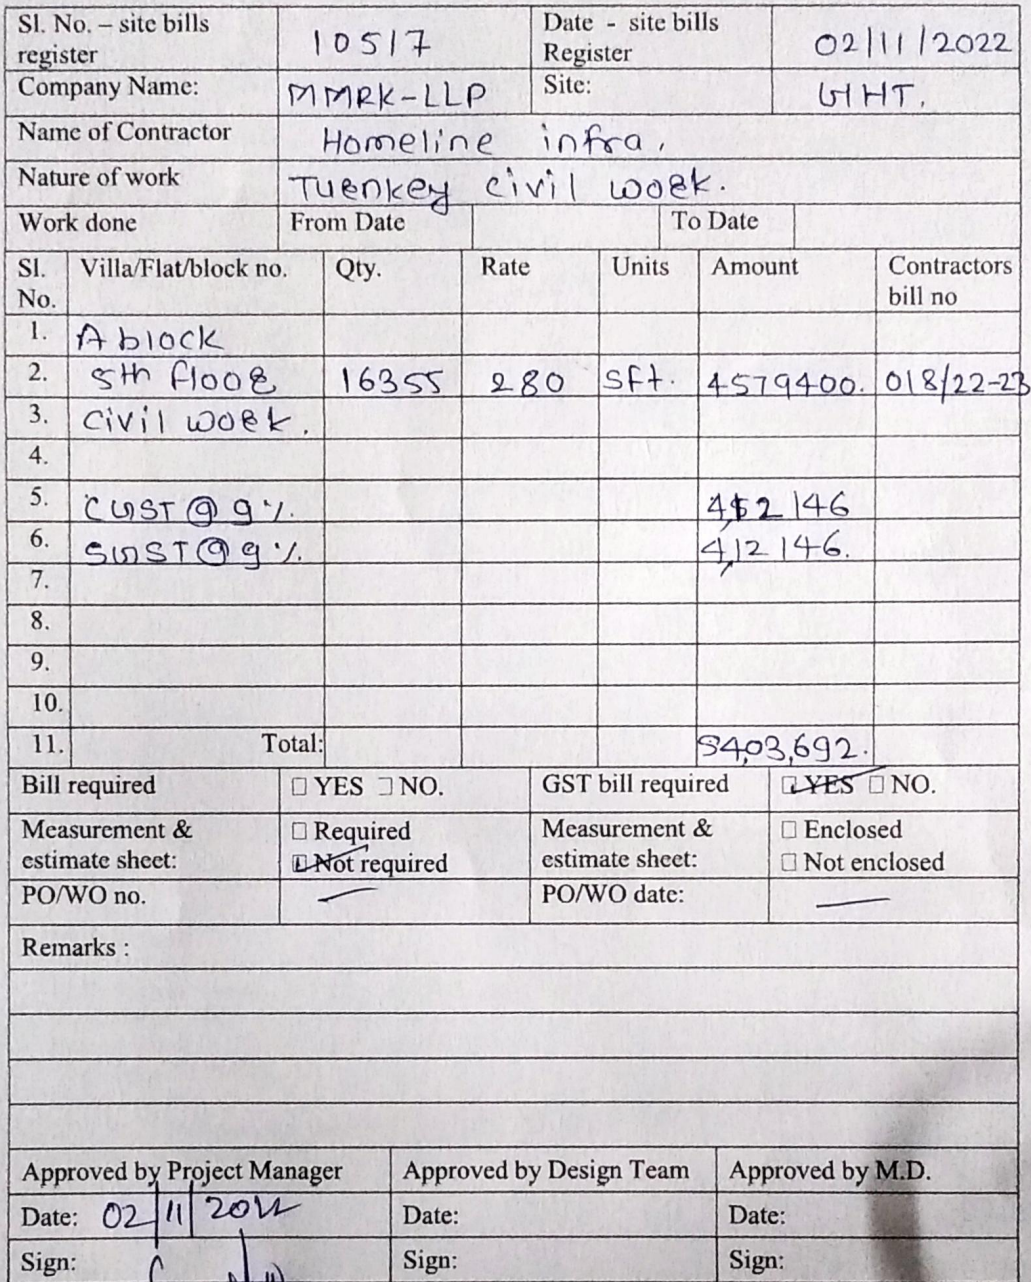 Sl. No. – site bills register 10517 Date - site bills Register 02/11/2022
Company Name: MMRK-LLP Site: GHT.
Name of Contractor Homeline infra.
Nature of work Turnkey civil work.
Work done From Date To Date
Sl. No. Villa/Flat/block no. Qty. Rate Units Amount Contractors bill no
1. A block
2. 5th floor 16355 280 Sft. 4579400. 018/22-23
3. Civil work.
4.
5. CGST @ 9%. 412146
6. SGST @ 9%. 412146.
7.
8.
9.
10.
11. Total: 5403,692.
Bill required □ YES □ NO. GST bill required □ YES □ NO.
Measurement & estimate sheet: □ Required □ Not required Measurement & estimate sheet: □ Enclosed □ Not enclosed
PO/WO no. — PO/WO date: —
Remarks :
Approved by Project Manager Approved by Design Team Approved by M.D.
Date: 02/11/2022 Date: Date:
Sign: Sign: Sign: